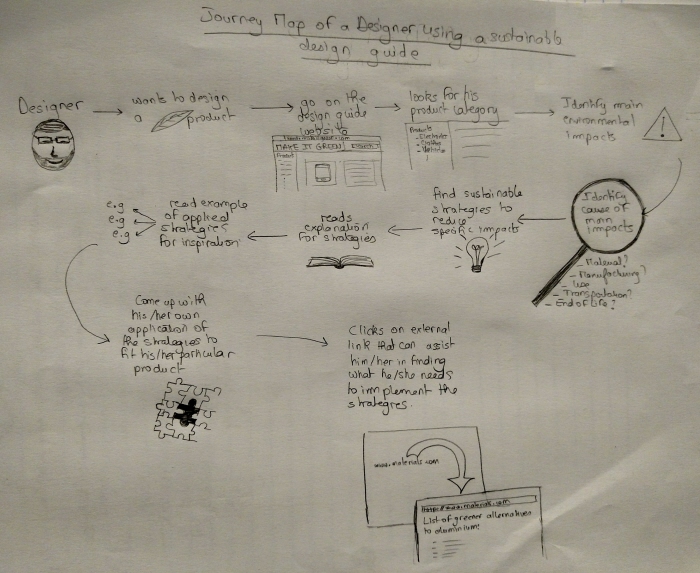 Journey Map of a Designer using a sustainable
design guide
Designer
wants to design
a product
go on the
design guide
website
MAKE IT GREEN
Product
looks for his
product category
Products
- Electronics
Identify main
environmental
impacts
!
Identify
cause of
main
impacts
- Material?
- Manufacturing?
- Use
- Transportation?
- End of Life?
find sustainable
strategies to
reduce
specific impacts
reads
explanation
for strategies
read example
of applied
strategies
for inspiration
e.g
e.g
e.g
Come up with
his/her own
application of
the strategies to
fit his/her particular
product
Clicks on external
link that can assist
him/her in finding
what he/she needs
to implement the
strategies.
www.materials.com
https://www.materials.com
List of greener alternatives
to aluminium: